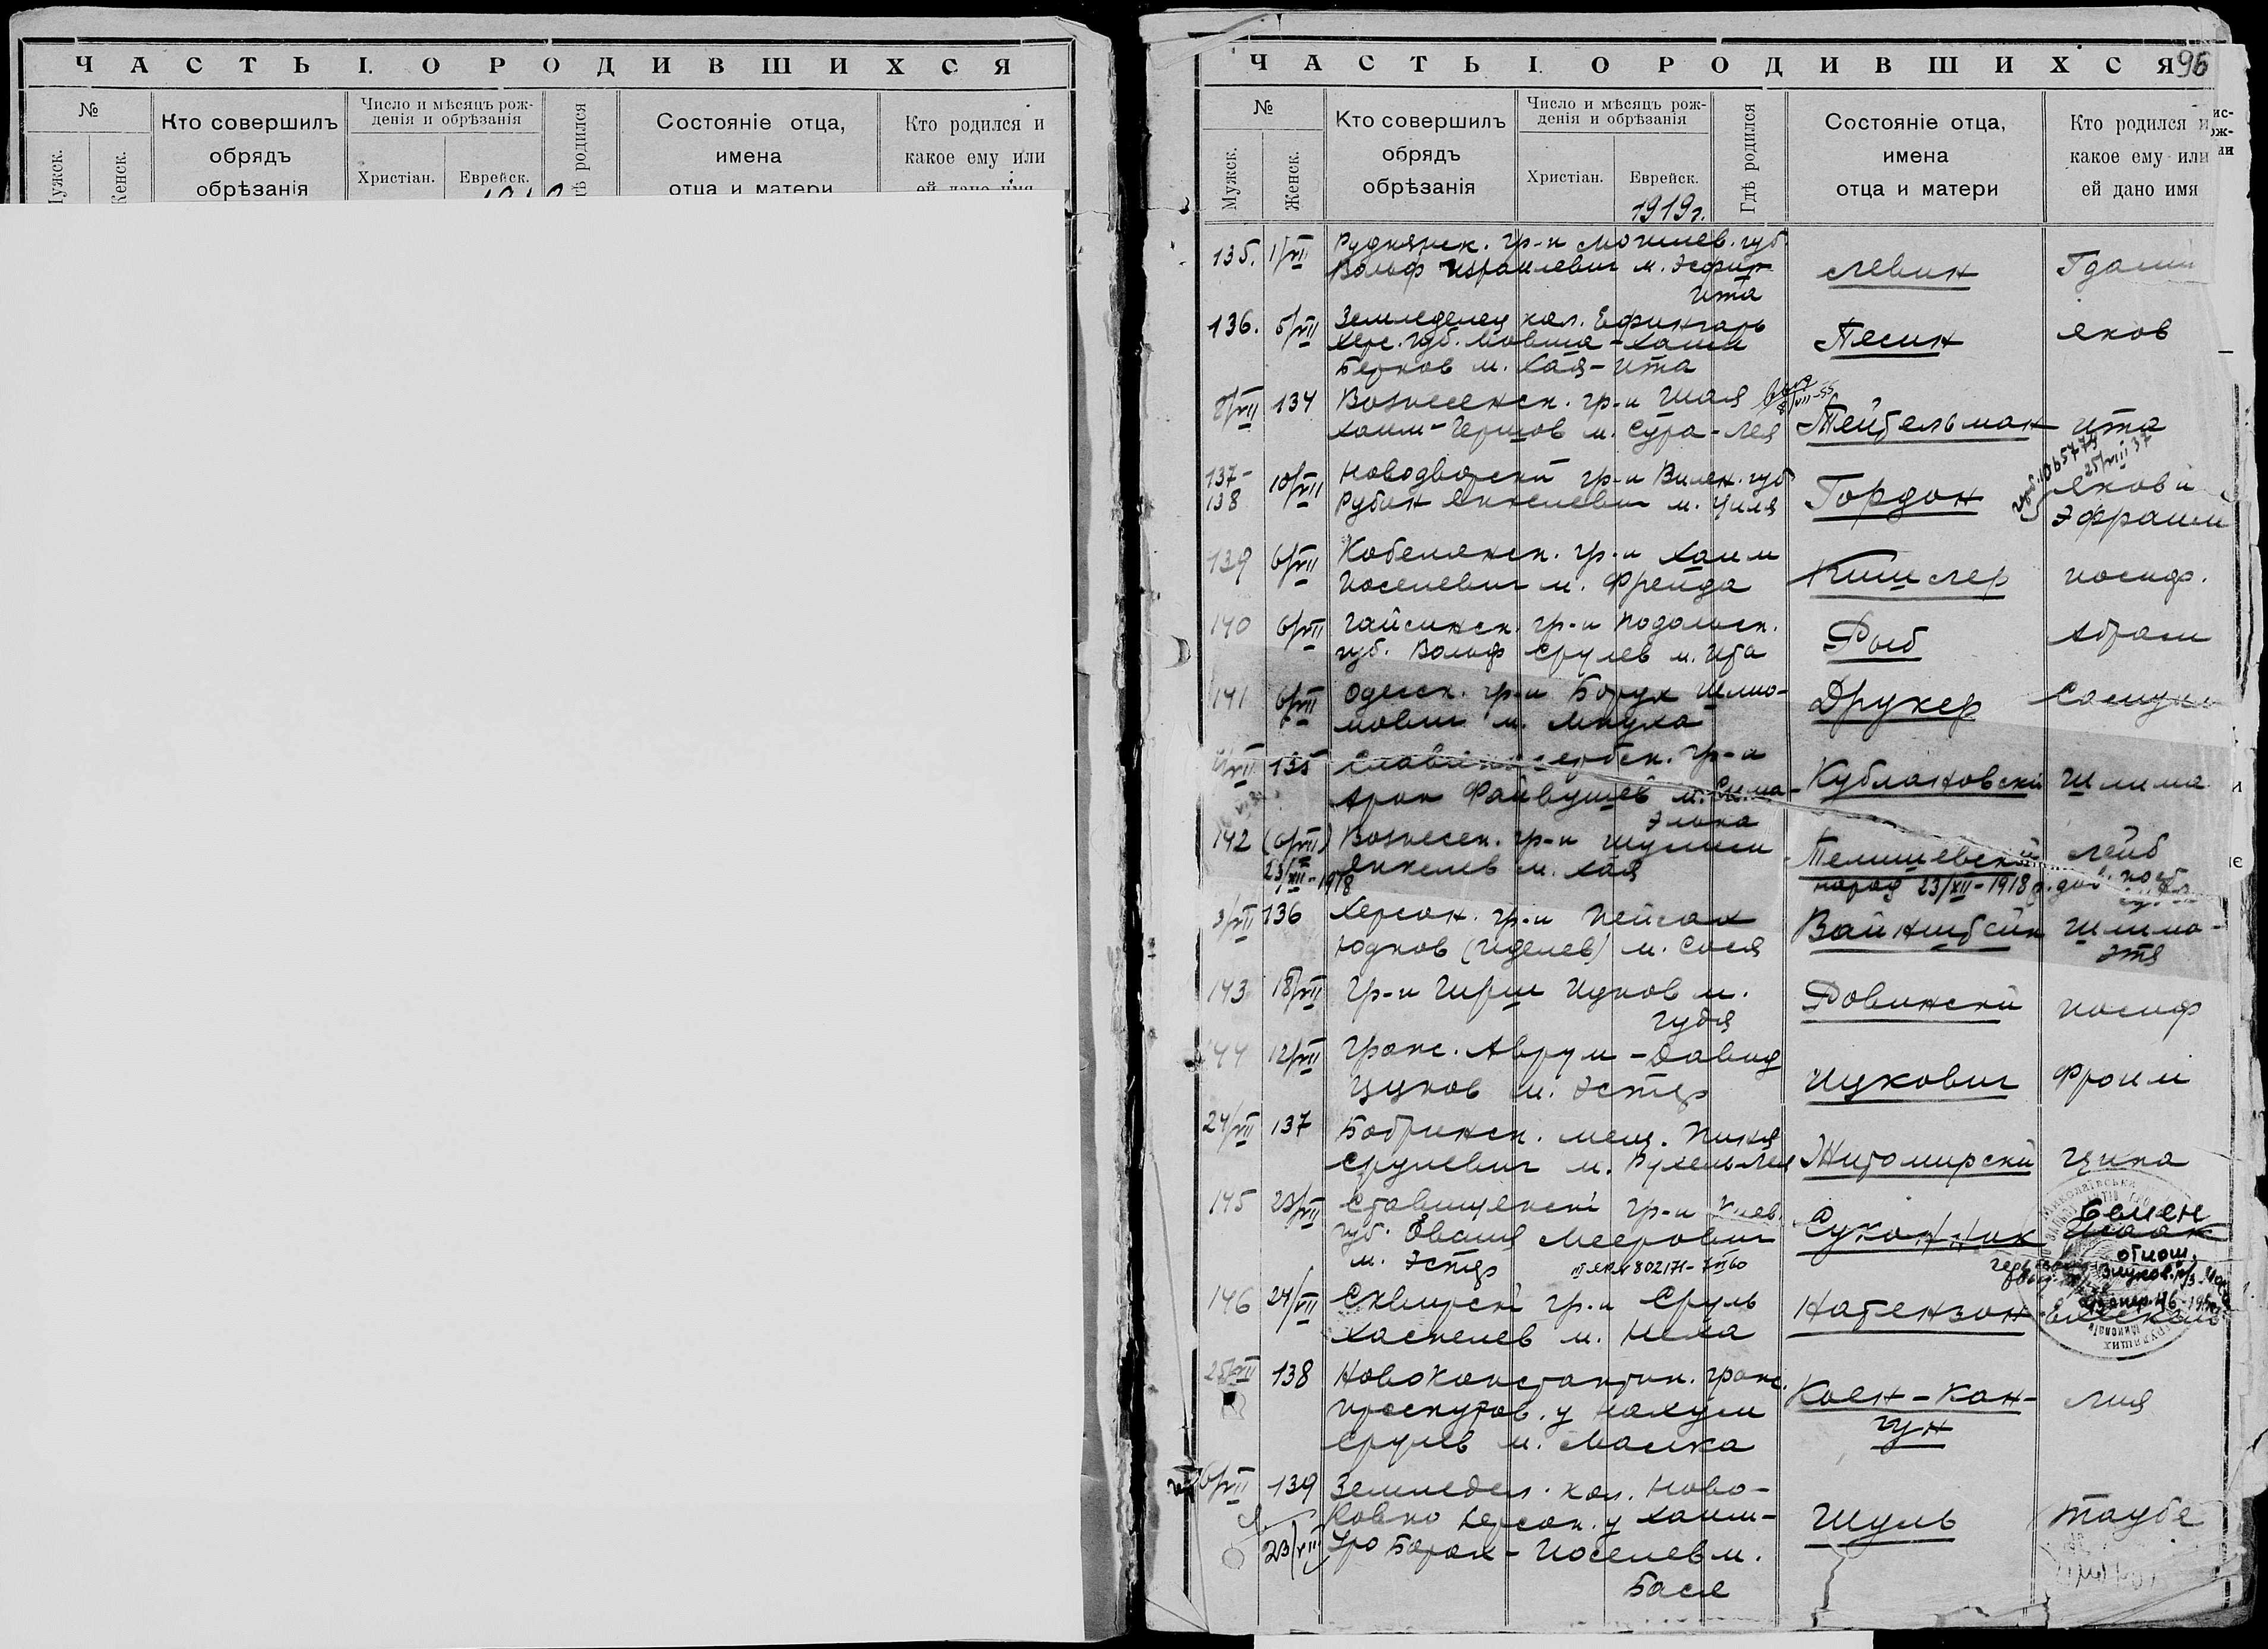 ЧАСТЬ I. О РОДИВШИХСЯ
№
Мужск.
Женск.
Кто совершилъ
обрядъ
обрѣзанія
Число и мѣсяцъ рож-
денія и обрѣзанія
Христіан.
Еврейск.
Гдѣ родился
Состояніе отца,
имена
отца и матери
Кто родился и
какое ему или
ей дано имя
ЧАСТЬ I. О РОДИВШИХСЯ
96
№
Мужск.
Женск.
Кто совершилъ
обрядъ
обрѣзанія
Число и мѣсяцъ рож-
денія и обрѣзанія
Христіан.
Еврейск.
1919г.
Гдѣ родился
Состояніе отца,
имена
отца и матери
Кто родился и
какое ему или
ей дано имя
135. 1/VII Руднянск. гр-н Могилев. губ.
Вольф Израилевич м. Эсфир
Ита
Левин
136. 5/VII Земледелец кол. Ефингарь
Хер. губ. Мовша-Хаим
Берков м. Хая-Ита
Песин Яков
8/VII 134 Вознесенск. гр-н Шая
Хаим-Гершов м. Сура-Лея
Тейбельман Ита
137-
138
10/VII Новодворский гр-н Вилен. губ
Рубин Янкелевич м. Циля
Гордон Яков и
Эфраим
25/VIII 37
139 6/VII Кобелякск. гр-н Хаим
Иоселевич м. Фрейда
Кишлер Иосиф.
140 6/VII Гайсинск. гр-н Подольск.
губ. Вольф Срулев м. Ита
Абрам
141 6/VII Одесск. гр-н Борух Шлио-
мович м. Мнуха
Друкер
135 Славяносербск. гр-н
Арон Файвушев м. Сима-
Элька
Кублановский Шлима
142 (6/VII) Вознесен. гр-н Шулим
Янкелев м. Хая
23/XII-1918
Телишевский Лейб
23/XII-1918
3/VII 136 Херсон. гр-н Пейсах
Юдков (Иделев) м. Сося
Вайншбейн Шлима-
Этя
143 18/VII Гр-н Гирш Ицков м.
Гудя
Довинский Иосиф
144 12/VII Гражд. Аврум-Давид
Ицков м. Эстер
Ицкович Фроим
24/VII 137 Бобринск. мещ. Пиня
Срулевич м. Рухель-Лея
Житомирский Ципа
145 23/VII Ставищенский гр-н Киев.
губ. Овший Меерович
м. Эстер
Сухонник Семен
Исаак
146 24/VII Сквирский гр-н Сруль
Хаскелев м. Неха
Натензон
25/VII 138 Новоконстантин. гражд.
Проскуров. у Нахум
Срулев м. Малка
Коен-Кан-
гун
Лия
6/VII 139 Земледел. кол. Ново-
Ковно Херсон. у Хаим-
23/VII
Иоселев м.
Бася
Шуль Таубе